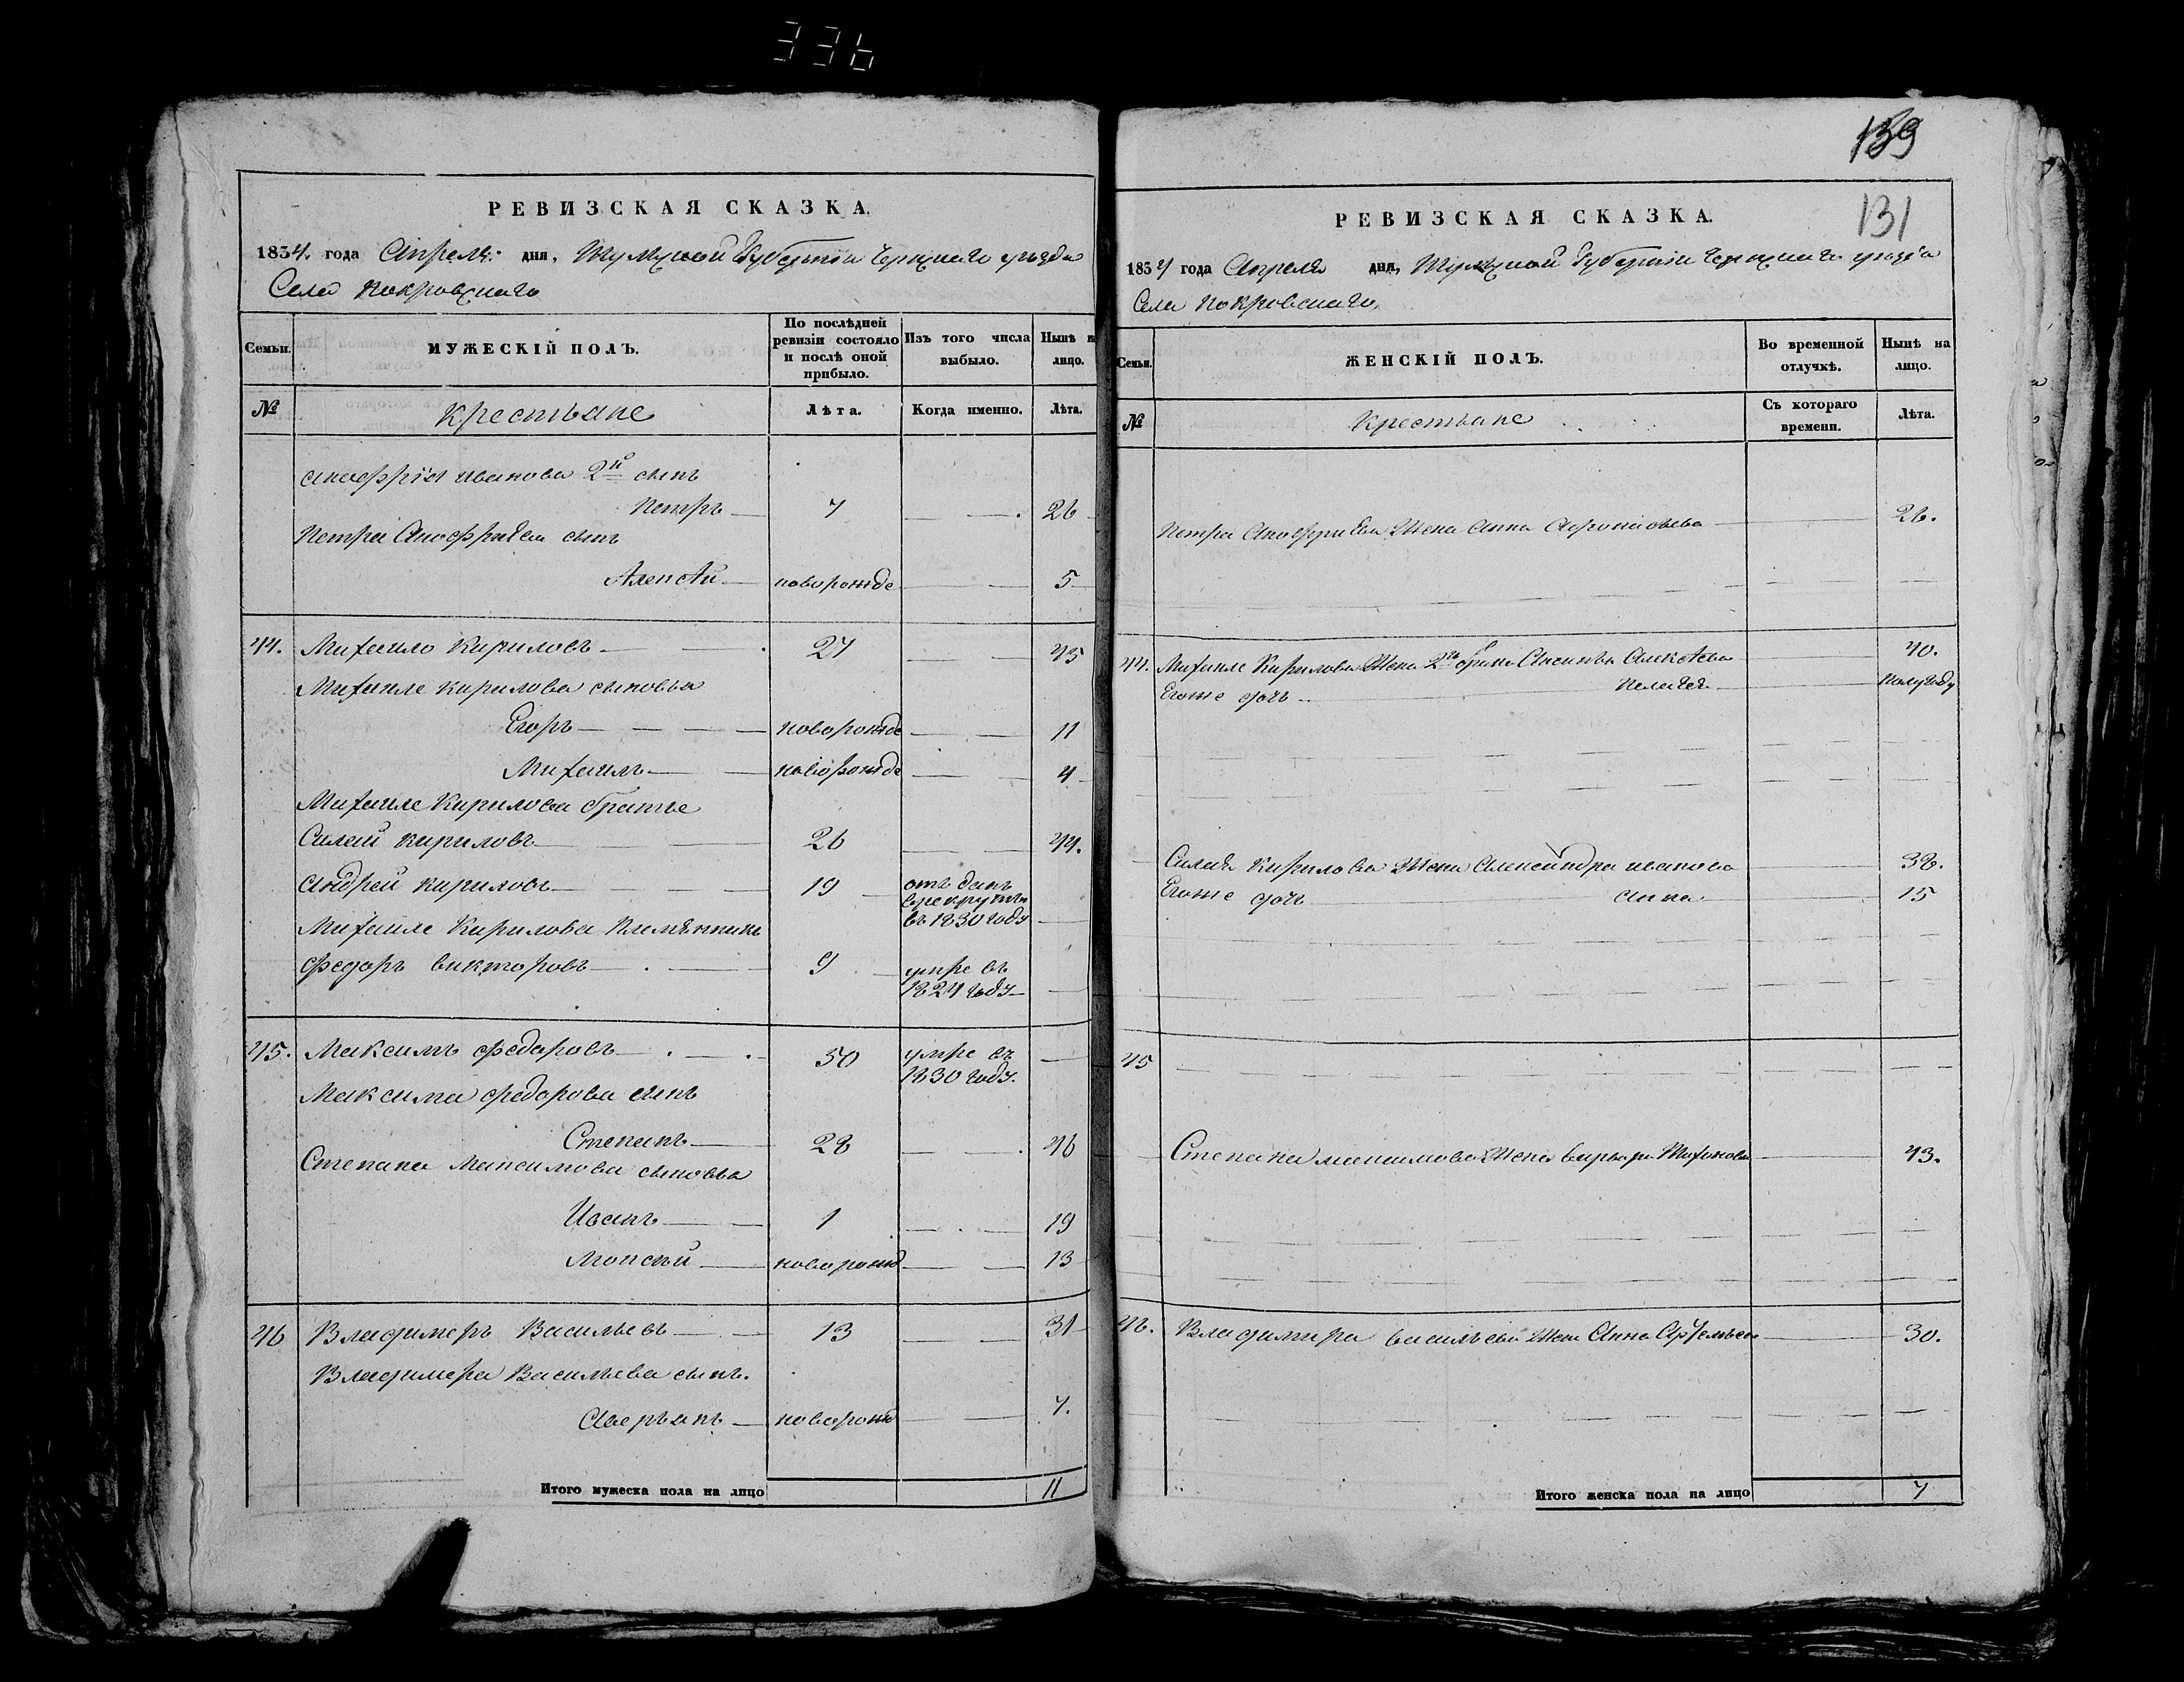 336
РЕВИЗСКАЯ СКАЗКА.
1834. года Апреля: дня, Тульской Губернiи Чернскаго уезда
Села Покровскаго
Семьи. МУЖЕСКIЙ ПОЛЪ. По послѣдней ревизiи состояло и послѣ оной прибыло. Изъ того числа выбыло. Нынѣ н лицо.
№ Крестьяне Лѣта. Когда именно. Лѣта.
Анофрiя иванова 2й сынъ
Петръ 7 26
Петра Анофриева сынъ
Алексѣй новорожде 5
44. Михаило Кириловъ 27 45
Михаиле кирилова сыновья
Егоръ новорожде 11
Михаилъ новорожде 4
Михаиле Кирилова братье
Силай кириловъ 26 44.
Андрей кириловъ 19 отъ данъ
в рекруты
въ 1830 году
Михаиле Кирилова племянникъ
Федоръ викторовъ 9 умре въ
1824 году
45. Максимъ федаровъ 50 умре въ
1830 году.
Максима федорова сынъ
Степанъ 28 46
Степана Максимова сыновья
Иванъ 1 19
Моисѣй новорожд 13
46 Владимеръ Васильевъ 13 31
Владимера Васильева сынъ.
Аверьянъ новорожд 7.
Итого мужеска пола на лицо 11
139
131
РЕВИЗСКАЯ СКАЗКА.
1834 года Апреля дня, Тульской Губернiи Чернскаго уезда
Села Покровскаго,
Семьи. ЖЕНСКIЙ ПОЛЪ. Во временной отлучкѣ. Нынѣ на лицо.
№ Крестьяне Съ котораго времени. Лѣта.
Петра Анофриева Жена Анна Афонасьева 26.
44. Михаиле Кирилова Жена 2го брака Аксинья Алексѣева 40.
Егоже дочь Пелагея полугоду
Силая Кирилова Жена Александра иванова 38.
Егоже дочь анна 15
45
Степана максимова Жена варвара Тихонова 43.
46. Владимира васильева Жена Анна Артемьева 30.
Итого женска пола на лицо 7